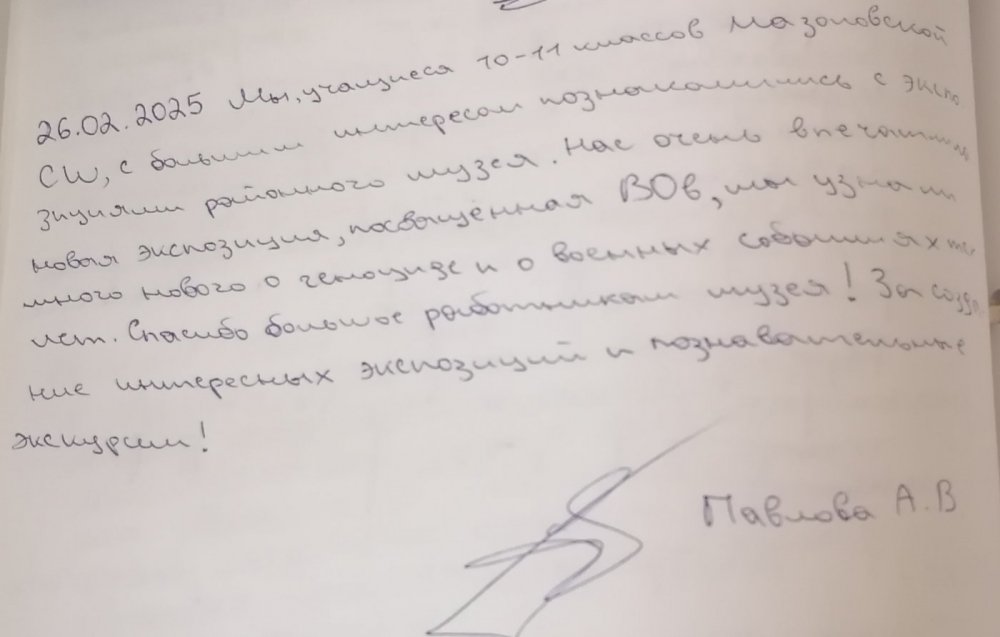 26.02.2025 Мы, учащиеся 10-11 классов Мазоловской
СШ, с большим интересом познакомились с экспо
зициями районного музея. Нас очень впечатлила
новая экспозиция, посвящённая ВОв, мы узнали
много нового о геноциде и о военных событиях тех
лет. Спасибо большое работникам музея! За созда
ние интересных экспозиций и познавательные
экскурсии!
Павлова А.В